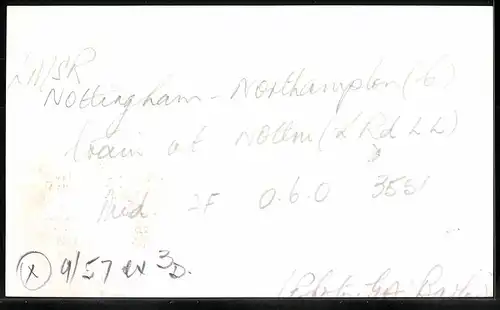 LM/SR
Nottingham - Northampton (C)
train at Nottm (L Rd LL)
Mid. 2F 0.6.0 3551
(X) 9/57 ex 3D.
(Photo. GA